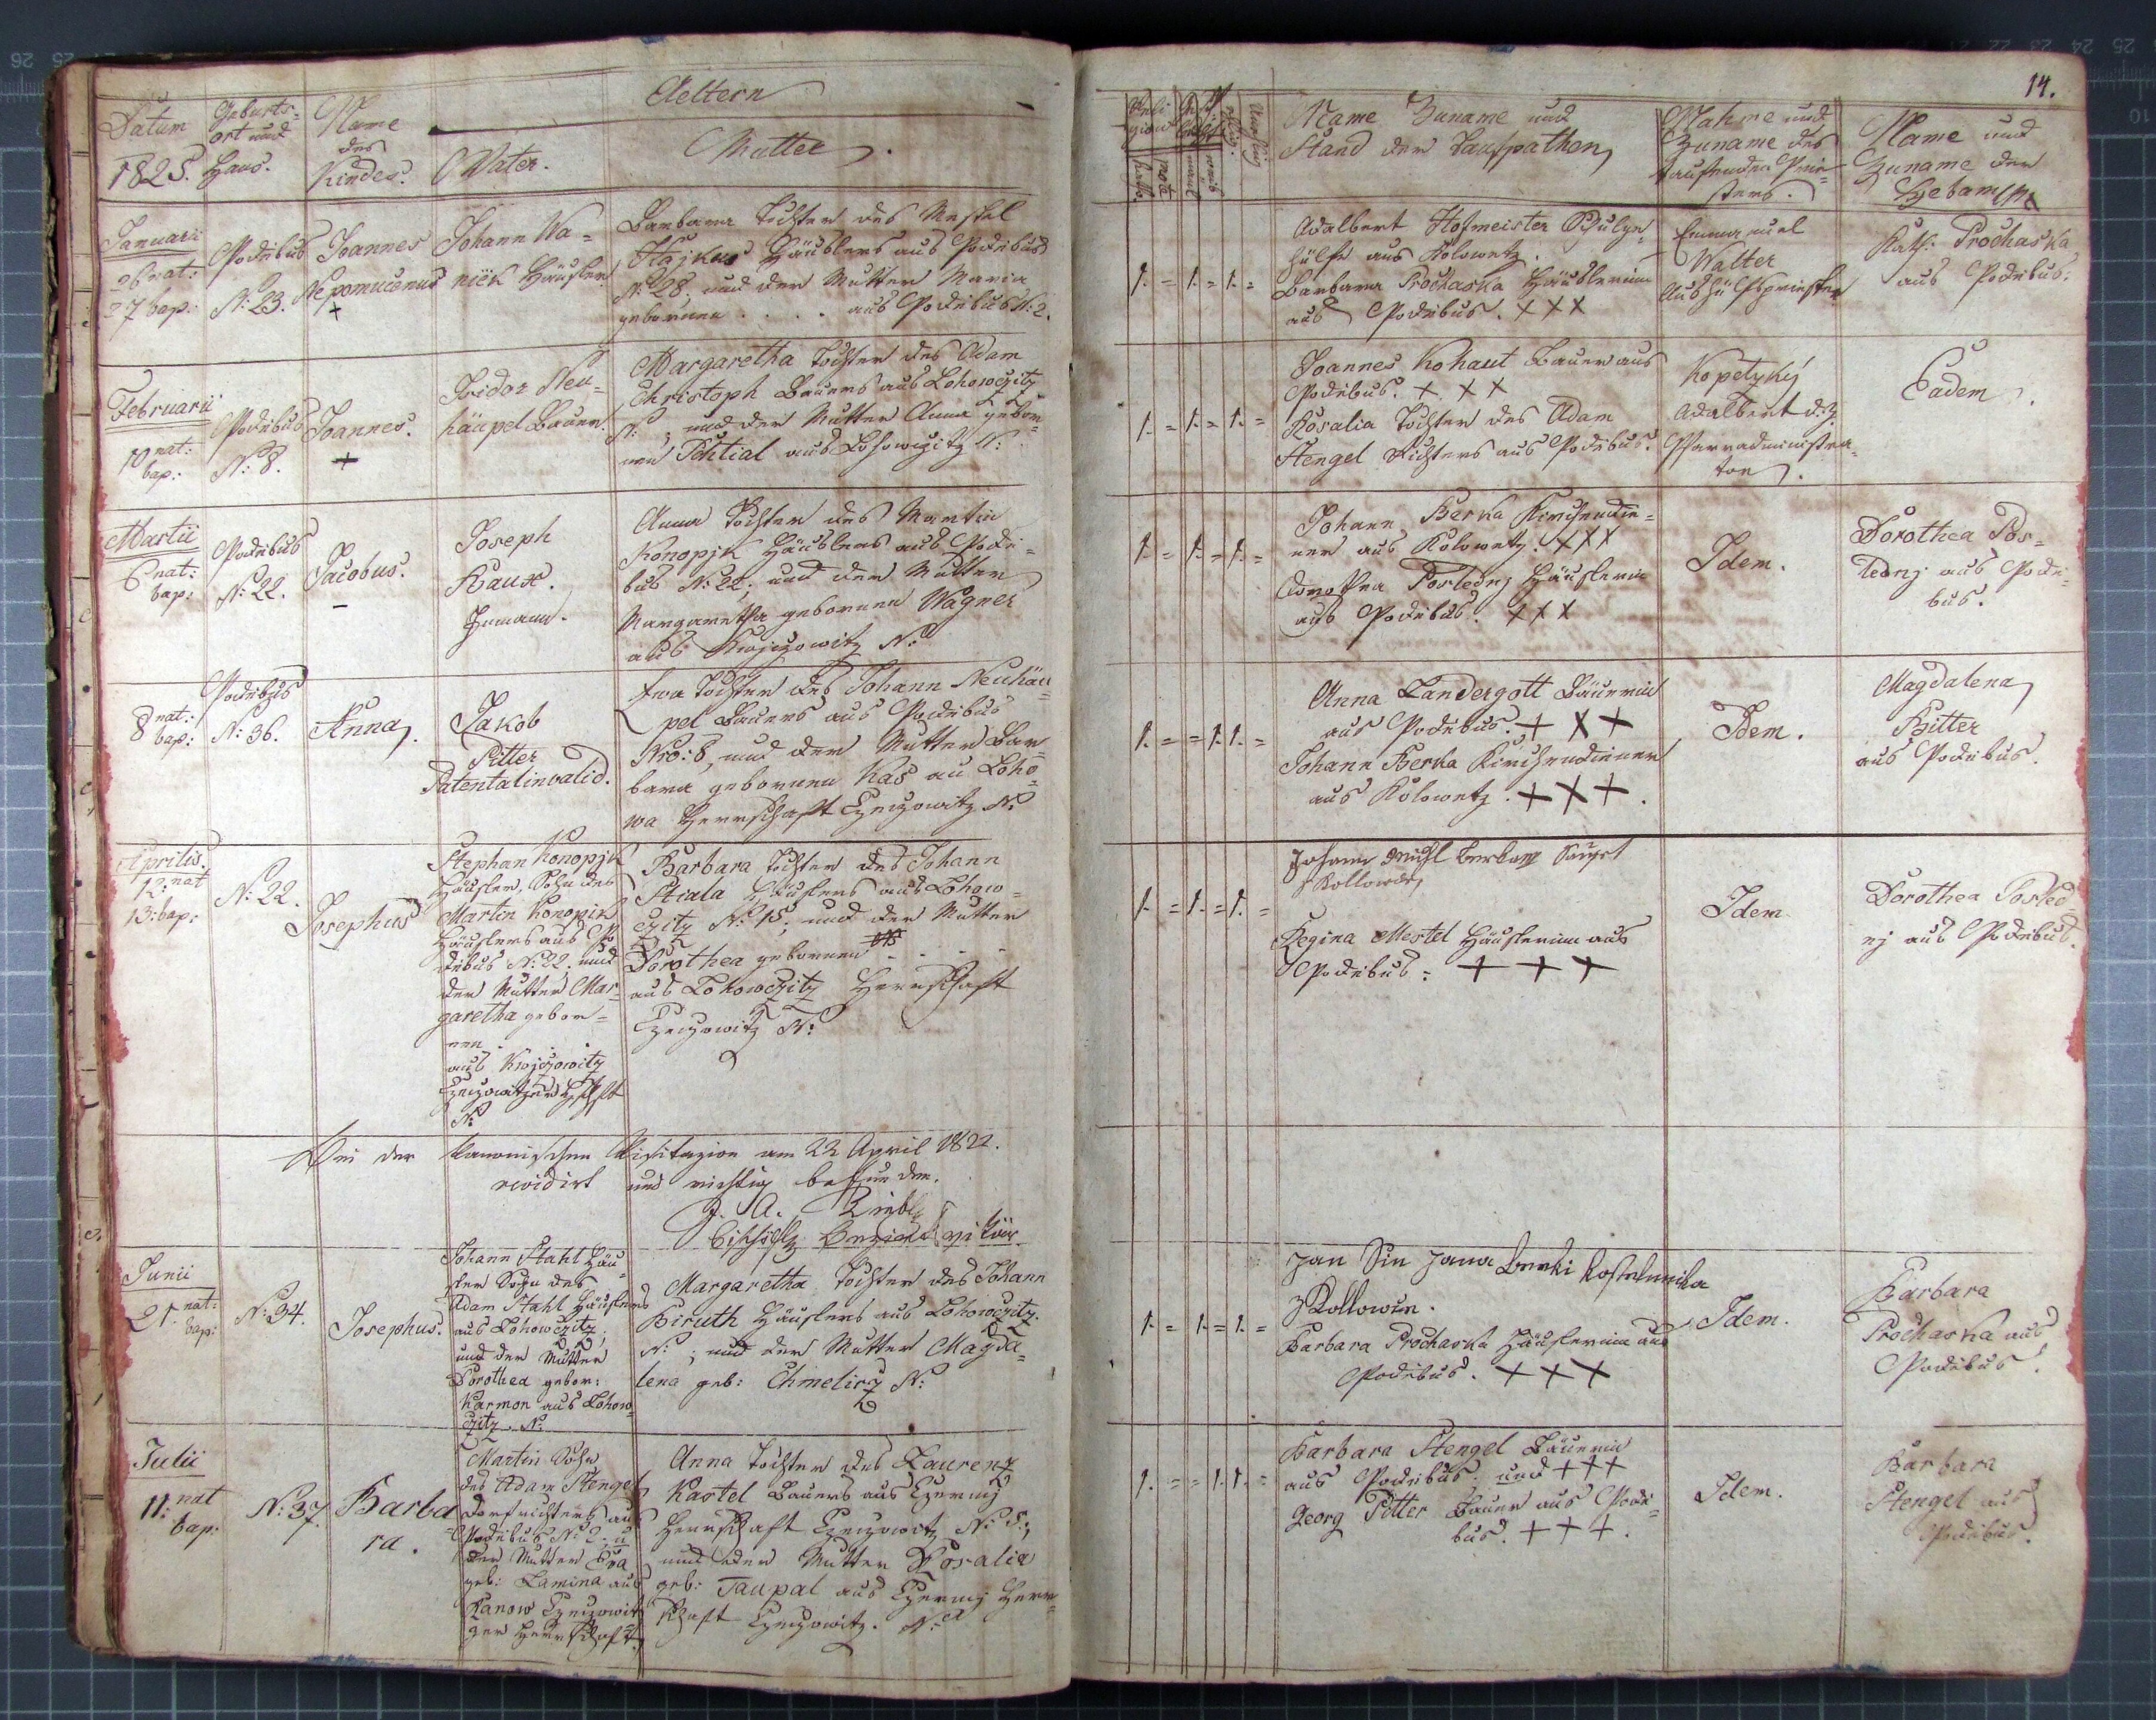 14.
Datum
1825.
Geburts-
ort und
Haus.
Name
des
Kindes.
Aeltern
Vater.
Mutter.
Januarii
26 nat:
27 bap:
Podiebus
N: 23.
Joannes
Nepomucenus
+
Johann Wa-
niek Häusler
Barbara Tochter des
Häuslers aus Podiebus
N: 28, und der Mutter Maria
gebornen . . . . aus Podiebus N: 2.
Februarii
10 nat:
bap:
Podiebus
N: 8.
Joannes.
+
Isidor Neu-
häupel Bauer.
Margaretha Tochter des Adam
Christoph Bauers aus Lohowczitz
N: , und der Mutter Anna gebor-
nen aus Lohowczitz N:
Martii
6 nat:
bap:
Podiebus
N: 22.
Jacobus.
-
Joseph
Baux.
Inmann.
Anna Tochter des Martin
Konopjk Häuslers aus Podie-
bus N: 22, und der Mutter
Margaretha gebornen Wagner
aus Kwjczowitz N:
8 nat:
bap:
Podiebus
N: 36.
Anna.
Jakob
Pitter
Patentalinvalid.
Ewa Tochter des Johann Neuhäu-
pel Bauers aus Podiebus
Nro: 8, und der Mutter Bar-
bara gebornen Kas au Loho-
wa Herrschaft Czeczowitz N:
Aprilis.
12: nat
13: bap:
N: 22.
Josephus
Stephan Konopjk
Häusler, Sohn des
Martin Konopik
Häuslers aus Po-
diebus N: 22. und
der Mutter Mar-
garetha gebor-
nen . . .
aus Kwjczowitz
Czeczowitzer Hschft
N:
Barbara Tochter des Johann
Stiala Häuslers aus Lohow-
czitz N: 15, und der Mutter
Dorothea gebornen . . .
aus Lohowczitz Herrschaft
Czeczowitz N:
Bei der kanonischen Visitazion am 22 April 1822.
revidirt und richtig befunden.
J. A.
bischöfl. Bezirksvikär
Junii
21. nat:
bap:
N: 34.
Josephus.
Johann Stahl Häu-
sler Sohn des
Adam Stahl Häuslers
aus Lohowczitz;
und der Mutter
Dorothea gebor:
Karmon aus Lohow-
czitz. N:
Margaretha Tochter des Johann
Biruth Häuslers aus Lohowczitz.
N: ; und der Mutter Magda-
lena geb: Chmelirz N:
Julii
11. nat
bap:
N: 37.
Barba
ra.
Martin Sohn
des Adam Stengel
Dorfrichters aus
Podiebus N: 2. u
der Mutter Eva
geb: Lamina aus
Kanow Czeczowit
zer Herrschaft.
Anna Tochter des Laurenz
Kastel Bauers aus Czerning
Herrschaft Czeczowitz N: 5.,
und der Mutter Rosalia
geb: Taupal aus Czerning Herr-
schaft Czeczowitz. N:
Name Zuname und
Stand der Taufpathen
Nahme und
Zuname des
taufenden Prie-
sters.
Name und
Zuname der
Hebamme
1. = 1. = 1. =
Adalbert Hofmeister Schulge-
hülfe aus Kolowetz.
Barbara Prochaska Häuslerinn
aus Podiebus. XXX
Emmanuel
Walter
Aushülfspriester
Kath: Prochaska
aus Podiebus.
1. = 1. = 1. =
Joannes Kohaut Bauer aus
Podiebus. + X X
Rosalia Tochter des Adam
Stengel Richters aus Podiebus.
Kopetzky
Adalbert d. Z.
Pfarradministra-
tor.
Eadem.
1. = 1. = 1. =
Johann Berka Kirchendie-
ner aus Kolowetz. XXX
Dorothea Posledny Häuslerin
aus Podiebus. XXX
Idem.
Dorothea Pos-
ledny aus Podie-
bus.
1. = = 1. 1. =
Anna Landergott Bäuerin
aus Podiebus. + X +
Johann Berka Kirchendiener
aus Kolowetz. + X +.
Idem.
Magdalena
Pitter
aus Podiebus.
1. = 1. = 1. =
Johann
Kollowetz
Regina Mestel Häuslerinn aus
Podiebus: + + +
Idem.
Dorothea Posled-
nj aus Podiebus.
1. = 1. = 1. =
Jan Sin Jana Berki kostelnika
z Kollowče.
Barbara Prochaska Häuslerinn aus
Podiebus. XXX
Idem.
Barbara
Prochaska aus
Podiebus.
1. = = 1. 1. =
Barbara Stengel Bäuerin
aus Podiebus. und +++
Georg Pitter Bauer aus Podie-
bus. + + +.
Idem.
Barbara
Stengel aus
Podiebus.